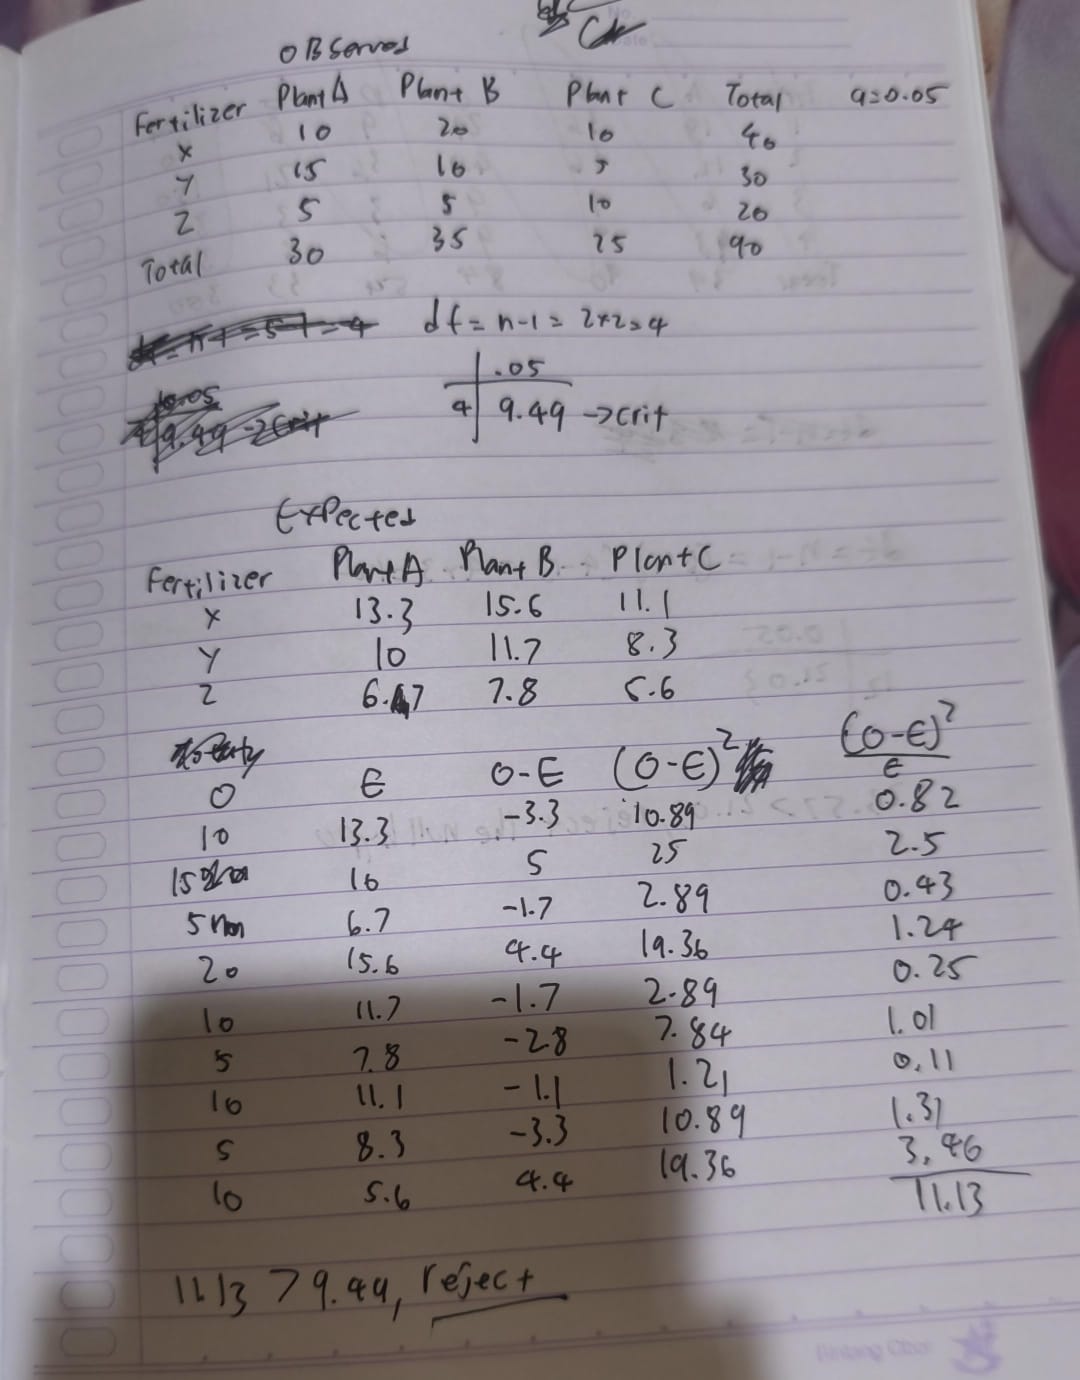 OBserved
Fertilizer Plant A Plant B Plant C Total a=0.05
X 10 20 10 40
Y 15 10 5 30
Z 5 5 10 20
Total 30 35 25 90
df = n-1 = 2x2=4
.05
4 9.49 →crit
Expected
Fertilizer Plant A Plant B Plant C
X 13.3 15.6 11.1
Y 10 11.7 8.3
Z 6.7 7.8 5.6
O E O-E (O-E)² (O-E)²/E
10 13.3 -3.3 10.89 0.82
15 10 5 25 2.5
5 6.7 -1.7 2.89 0.43
20 15.6 4.4 19.36 1.24
10 11.7 -1.7 2.89 0.25
5 7.8 -2.8 7.84 1.01
10 11.1 -1.1 1.21 0.11
5 8.3 -3.3 10.89 1.31
10 5.6 4.4 19.36 3.46
11.13
11.13 > 9.49, reject